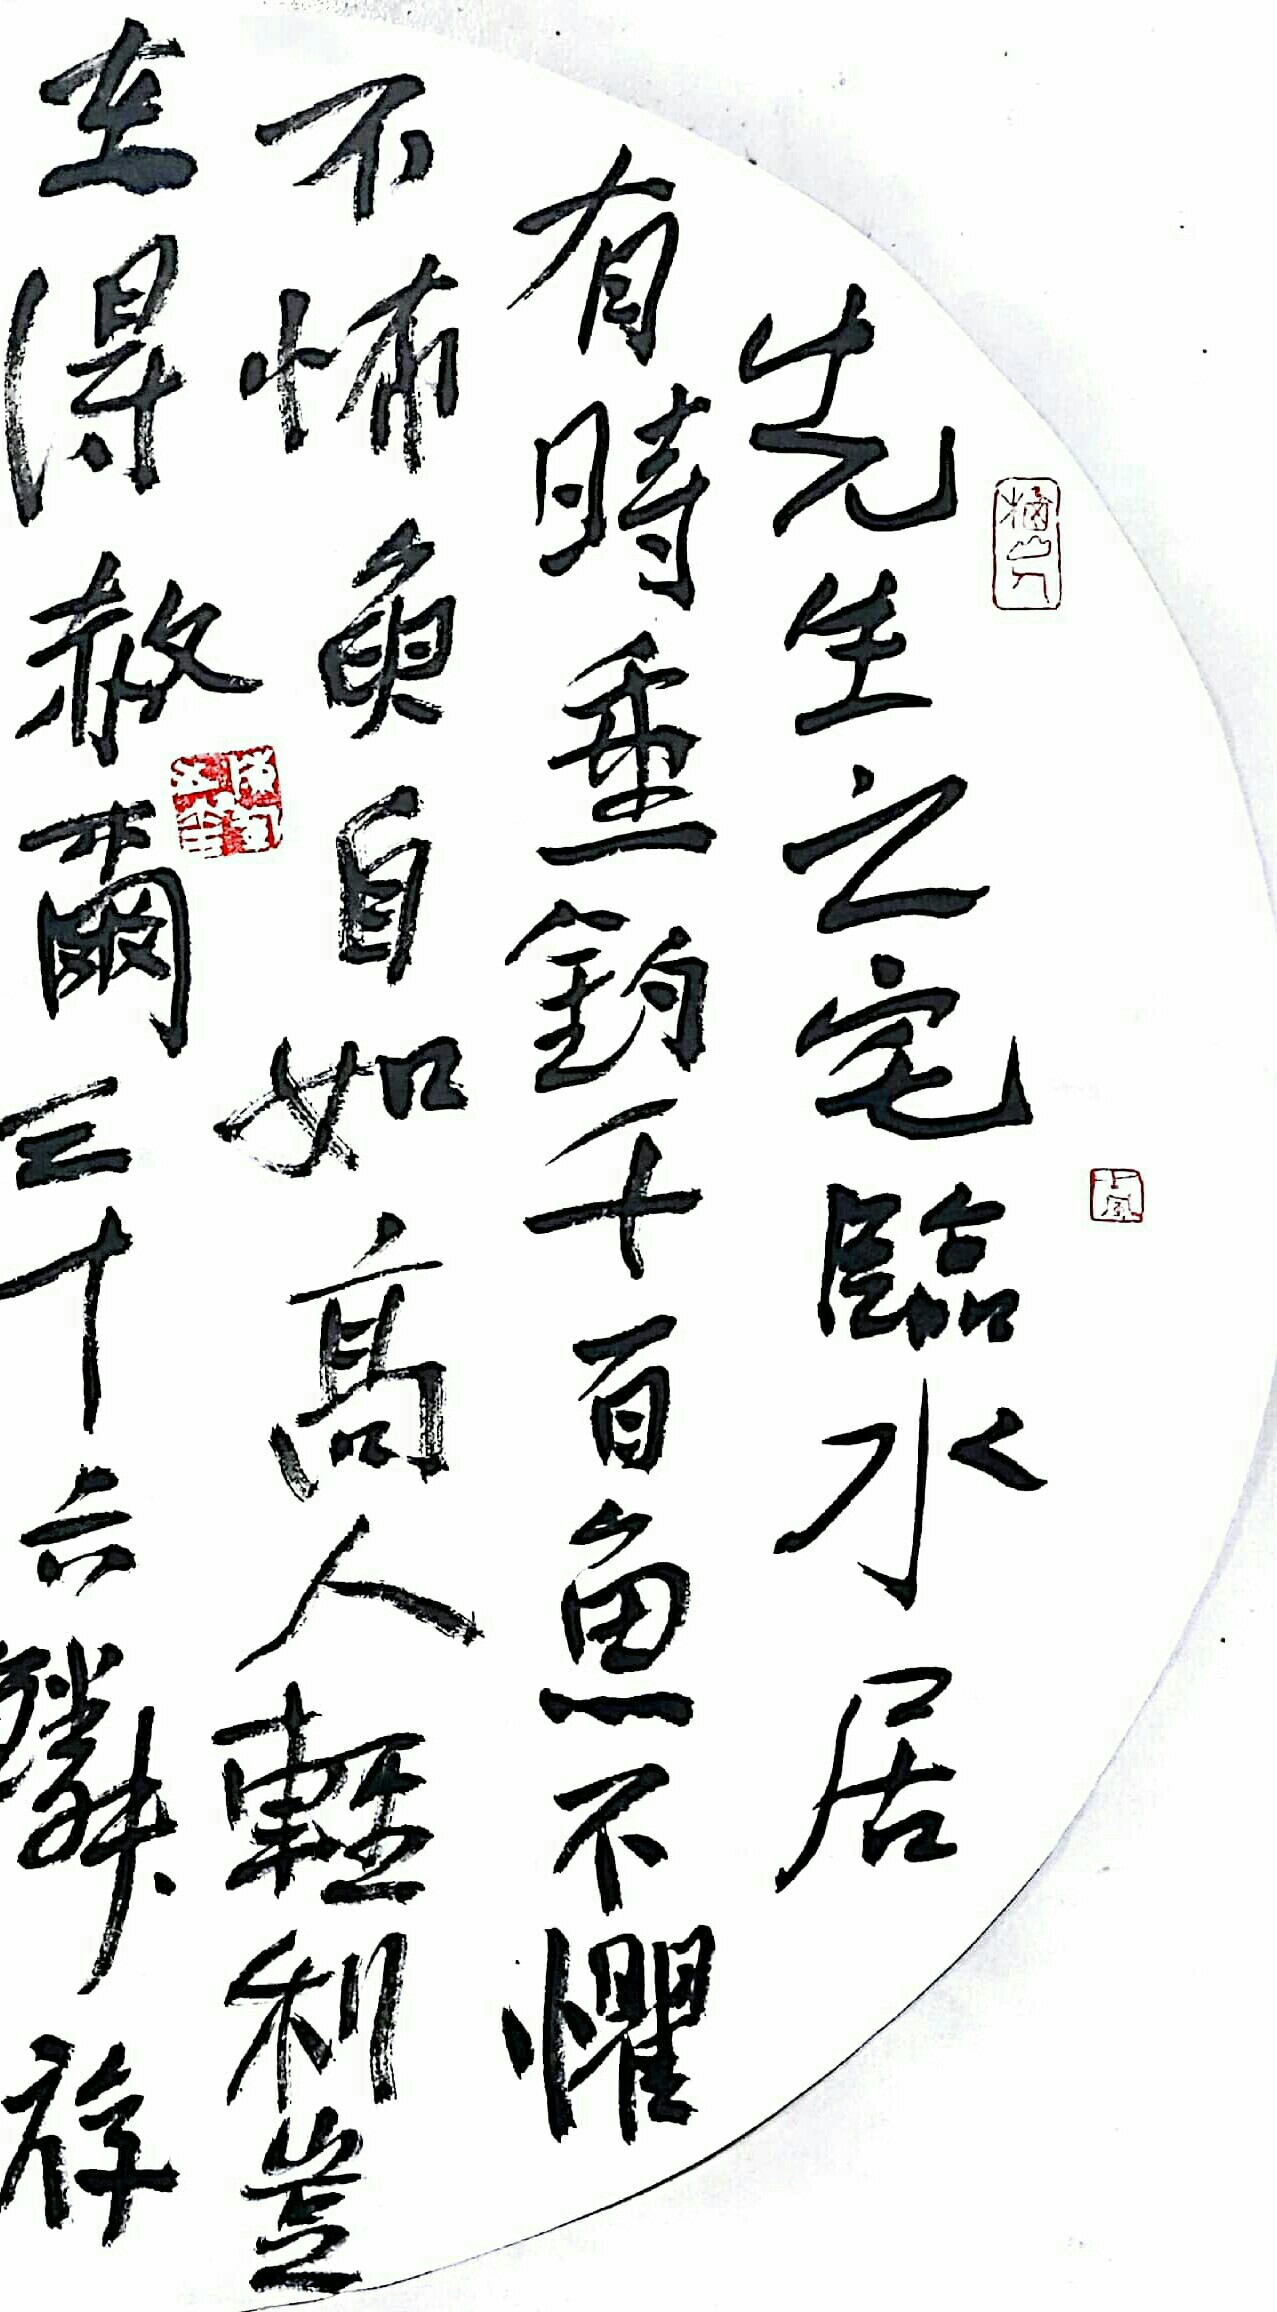 先生之宅臨水居
有時垂釣千百魚不懼
不怖魚自如高人輕利豈
在得赦爾三十六鱗